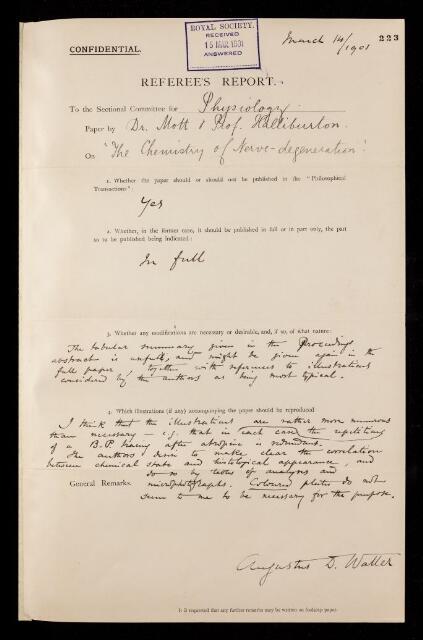 ROYAL SOCIETY.
RECEIVED
15 MAR 1901
ANSWERED
March 14/1901
223
CONFIDENTIAL.
REFEREE'S REPORT.
To the Sectional Committee for Physiology.
Paper by Dr. Mott & Prof. Halliburton.
On "The Chemistry of Nerve-degeneration".
1. Whether the paper should or should not be published in the "Philosophical
Transactions":
Yes
2. Whether, in the former case, it should be published in full or in part only, the part
so to be published being indicated:
In full
3. Whether any modifications are necessary or desirable, and, if so, of what nature:
The tabular summary given in the Proceedings
abstract is useful, and might be given again in the
full paper, together with references to illustrations
considered by the authors as being most typical.
4. Which illustrations (if any) accompanying the paper should be reproduced
I think that the illustrations are rather more numerous
than necessary – e.g. that in each case the repetition
of a B.P. tracing after atropine is redundant.
The authors desire to make clear the correlation
between chemical state and histological appearance, and
do so by tables of analyses and
General Remarks. microphotographs. Coloured plates do not
seem to me to be necessary for the purpose.
Augustus D. Waller
It is requested that any further remarks may be written on foolscap paper.